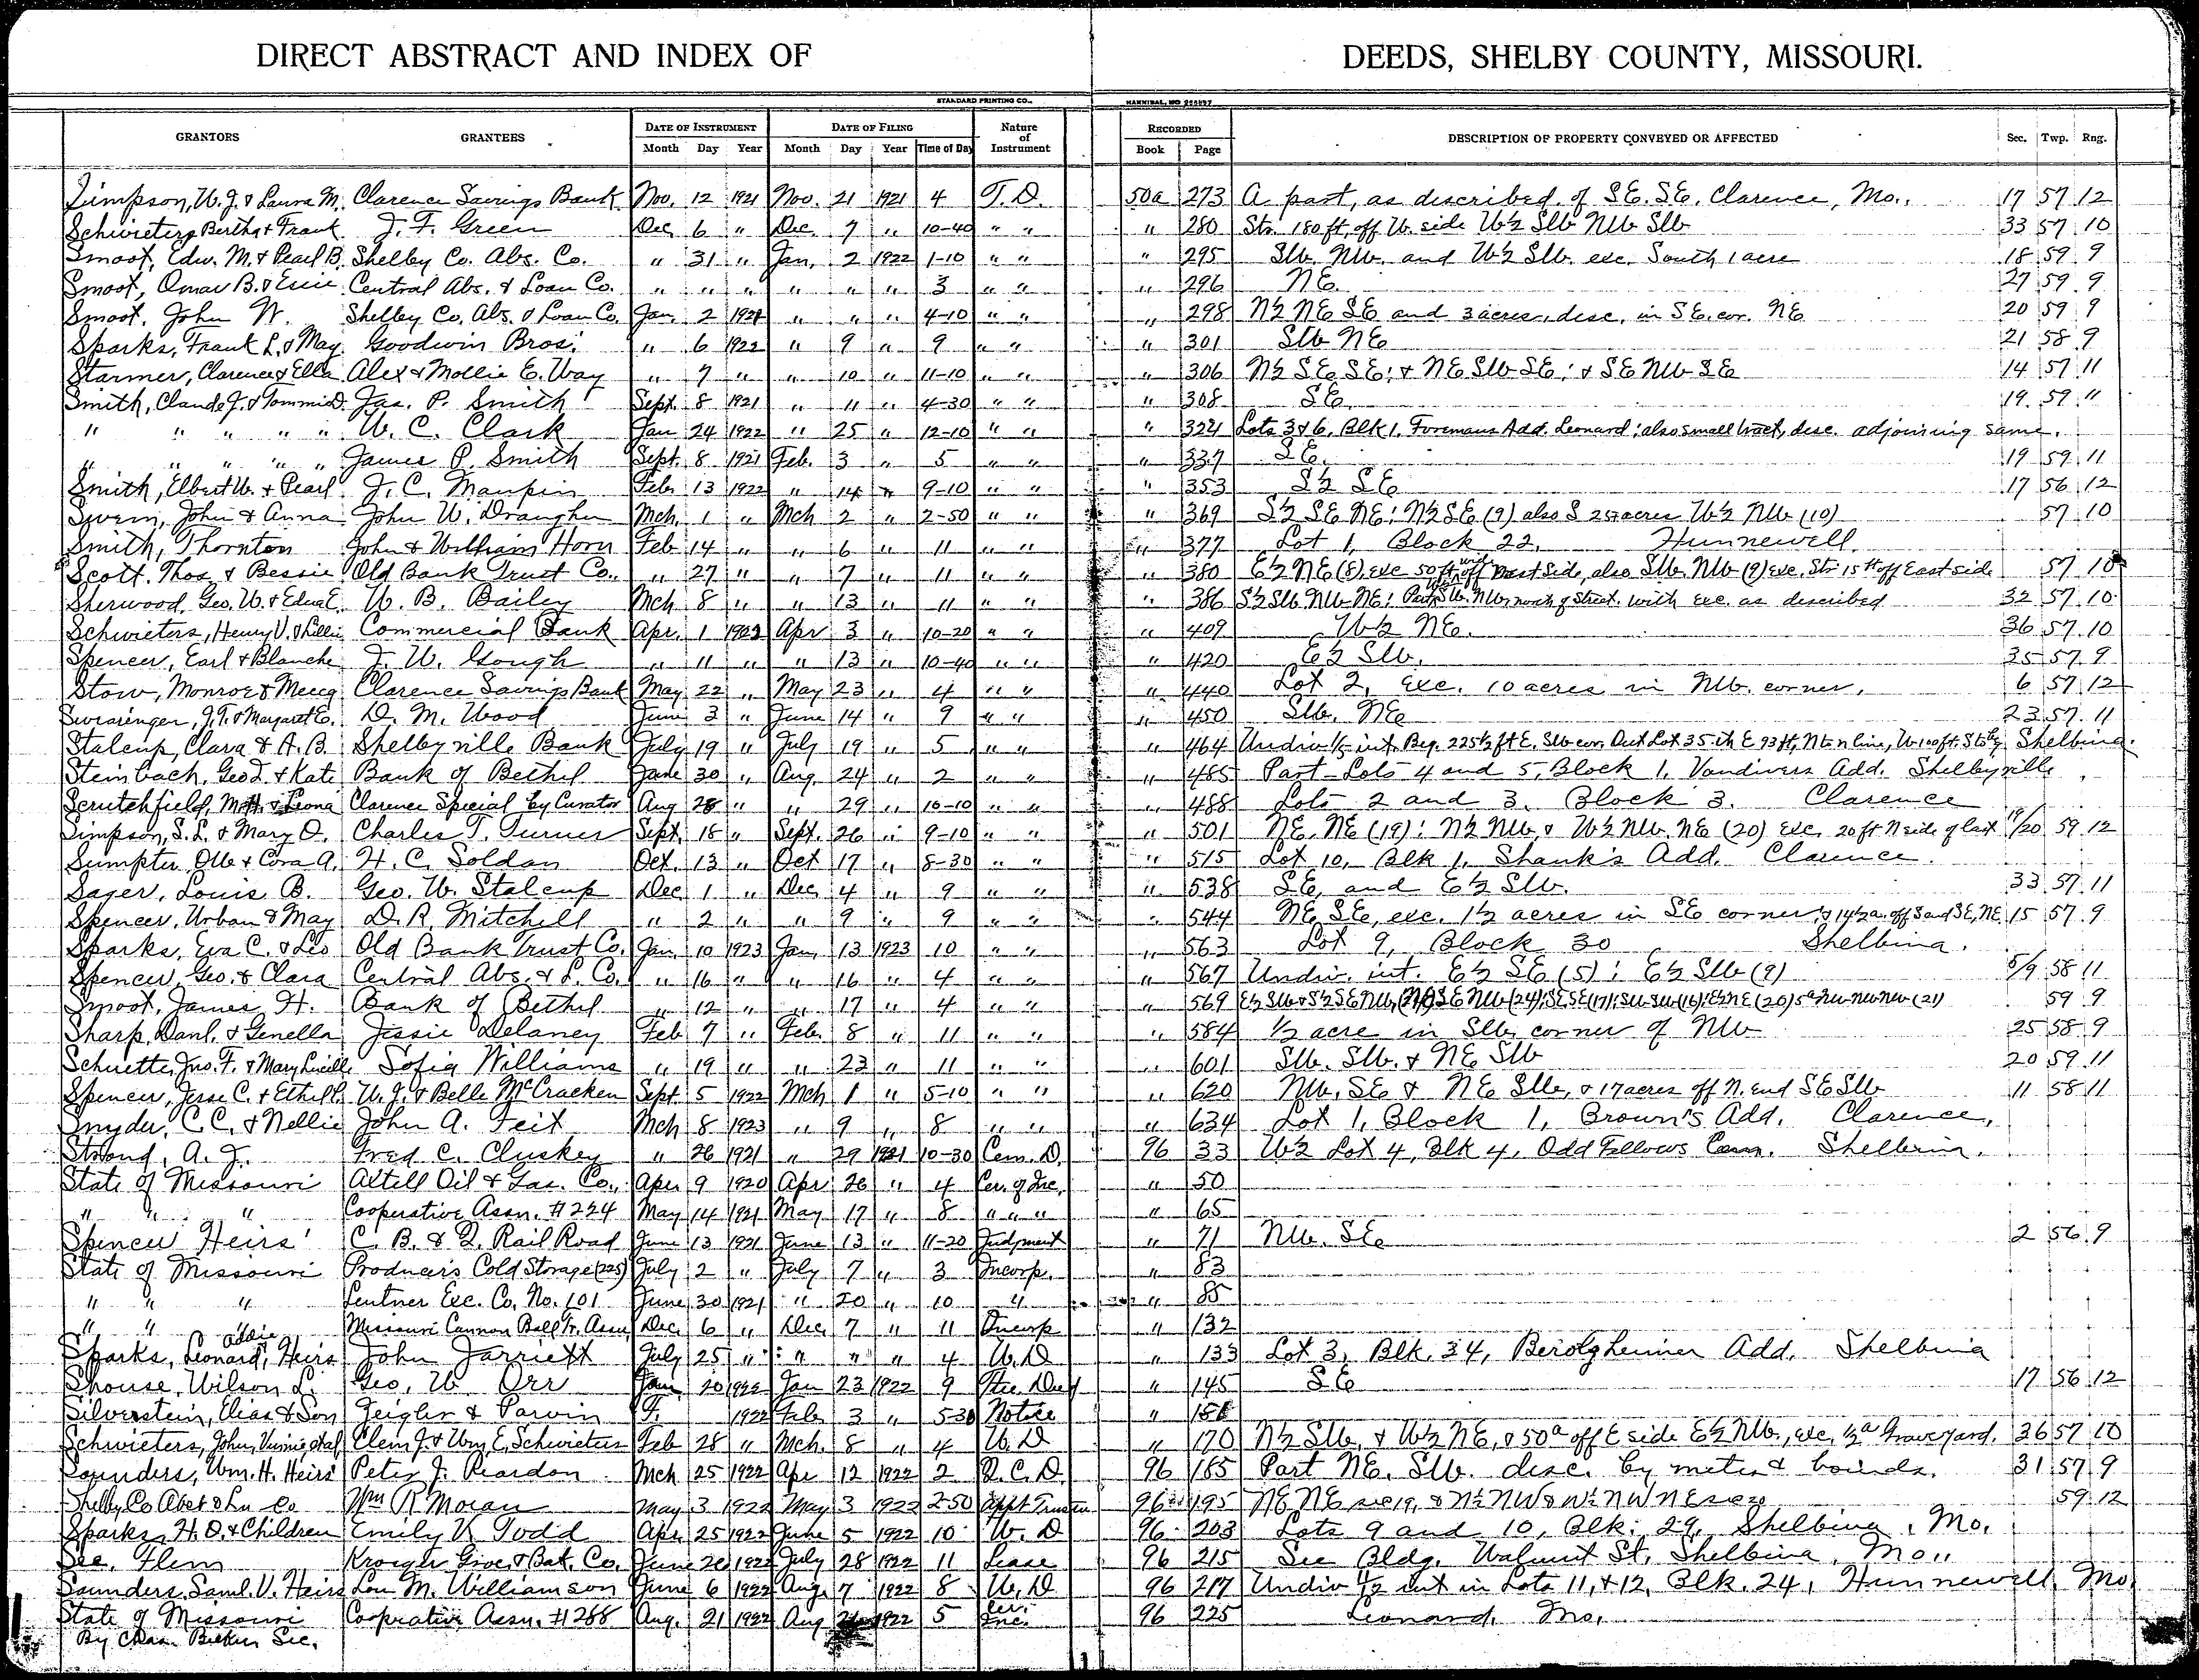 DIRECT ABSTRACT AND INDEX OF DEEDS, SHELBY COUNTY, MISSOURI.
STANDARD PRINTING CO., HANNIBAL, MO
GRANTORS GRANTEES DATE OF INSTRUMENT DATE OF FILING Nature of Instrument RECORDED DESCRIPTION OF PROPERTY CONVEYED OR AFFECTED Sec. Twp. Rng.
Month Day Year Month Day Year Time of Day Book Page
Simpson, W. J. & Laura M. Clarence Savings Bank Nov. 12 1921 Nov. 21 1921 4 T. D. 50a 273 A part, as described, of S.E. S.E. Clarence, Mo., 17 57 12
Schwieters Bertha & Frank J. F. Green Dec. 6 " Dec. 7 " 10-40 " " " 280 Str. 180 ft, off W. side W½ SW NW SW 33 57 10
Smoot, Edw. M. & Pearl B. Shelby Co. Abs. Co. " 31 " Jan. 2 1922 1-10 " " " 295 SW. NW. and W½ SW. exc. South 1 acre 18 59 9
Smoot, Omar B. & Essie Central Abs. & Loan Co. " " " " " " 3 " " " 296 NE. 27 59 9
Smoot, John W. Shelby Co. Abs. & Loan Co. Jan. 2 1921 " " " 4-10 " " " 298 N½ NE SE and 3 acres, desc. in S.E. cor. NE 20 59 9
Sparks, Frank L. & May Goodwin Bros. " 6 1922 " 9 " 9 " " " 301 SW NE 21 58 9
Starmer, Clarence & Ella Alex & Mollie E. Way " 7 " " 10 " 11-10 " " " 306 N½ S.E. SE; & NE SW SE; & SE NW SE 14 57 11
Smith, Claude J. & Tommie D. Jas. P. Smith Sept. 8 1921 " 11 " 4-30 " " " 308 SE. 19 59 "
" " " " " W. C. Clark Jan 24 1922 " 25 " 12-10 " " " 324 Lots 3 & 6, Blk 1, Foremans Add. Leonard; also small tract, desc. adjoining same.
" " " " " James P. Smith Sept. 8 1921 Feb. 3 " 5 " " " 337 S.E. 19 59 11
Smith, Elbert W. & Pearl J. C. Maupin Feb. 13 1922 " 14 " 9-10 " " " 353 S½ SE 17 56 12
John & Anna John W. Draughn Mch. 1 " Mch 2 " 2-50 " " " 369 S½ SE NE; N½ SE (9) also S 25 acres W½ NW (10) 57 10
Smith, Thornton John & William Horn Feb 14 " " 6 " 11 " " " 377 Lot 1, Block 22, Hunnewell.
Scott, Thos. & Bessie Old Bank Trust Co. " 27 " " 7 " 11 " " " 380 E½ NE (8) exc 50 ft off side, also SW. NW (9) exc. Str 15 ft off East side 57 10
Sherwood, Geo. W. & Edna E. W. B. Bailey Mch 8 " " 13 " 11 " " " 386 S½ SW NW NE; Part SW. NW, north of Street. with exc. as described 32 57 10
Schwieters, Henry V. & Lillie Commercial Bank Apr. 1 1922 Apr 3 " 10-20 " " " 409 W½ NE. 36 57 10
Spencer, Earl & Blanche J. W. Gough " 11 " " 13 " 10-40 " " " 420 E½ SW. 35 57 9
Stow, Monroe & Clarence Savings Bank May 22 " May 23 " 4 " " " 440 Lot 2, exc. 10 acres in NW. corner, 6 57 12
Swearinger, J. T. & Margaret E. D. M. Wood June 3 " June 14 " 9 " " " 450 SW. NE 23 57 11
Stalcup, Clara & A. B. Shelbyville Bank July 19 " July 19 " 5 " " " 464 Undiv 1/5 int. Beg. 225½ ft E. SW cor. Out Lot 35 th E 93 ft, N to n line, W 100 ft. S to Shelbina.
Steinbach, Geo L. & Kate Bank of Bethel June 30 " Aug. 24 " 2 " " " 485 Part Lots 4 and 5, Block 1, Vandivers Add. Shelbyville
Scrutchfield, & Leona Clarence Special by Curator Aug 28 " " 29 " 10-10 " " " 488 Lots 2 and 3, Block 3. Clarence
Simpson, S. L. & Mary O. Charles T. Turner Sept. 18 " Sept. 26 " 9-10 " " " 501 NE. NE (19); N½ NW, & W½ NW. NE (20) exc. 20 ft N side of last 19/20 59 12
Sumpter, Olle & Cora A. H. C. Soldan Oct. 13 " Oct 17 " 8-30 " " " 515 Lot 10, Blk 1, Shank's Add. Clarence.
Sager, Louis B. Geo. W. Stalcup Dec 1 " Dec 4 " 9 " " " 538 SE, and E½ SW. 33 57 11
Spencer, Urban & May D. R. Mitchell " 2 " " 9 " 9 " " " 544 NE SE, exc. 1½ acres in SE corner; & 14½ a. off S end SE, NE 15 57 9
Sparks, Eva C. & Leo Old Bank Trust Co. Jan. 10 1923 Jan. 13 1923 10 " " " 563 Lot 9, Block 30 Shelbina.
Spencer, Geo. & Clara Central Abs. & L. Co. " 16 " " 16 " 4 " " " 567 Undiv. int. E½ SE (5); E½ SW (9) 5/9 58 11
Smoot, James H. Bank of Bethel " 12 " " 17 " 4 " " " 569 E½ SW & S½ SE NW, SE NW (24); SE SE (17); SW SW (16); E½ NE (20) 5a NW NW NW (21) 59 9
Sharp, Danl. & Genella Jessie Delaney Feb 7 " Feb. 8 " 11 " " " 584 ½ acre in SW. corner of NW 25 58 9
Schuette, Jno. F. & Mary Sofia Williams " 19 " " 23 " 11 " " " 601 SW. SW. & NE SW 20 59 11
Spencer, Jesse C. & Ethel P. W. J. & Belle McCracken Sept. 5 1922 Mch 1 " 5-10 " " " 620 NW. SE & NE SW, & 17 acres off N. end SE SW 11 58 11
Snyder, C. C. & Nellie John A. Feit Mch 8 1923 " 9 " 8 " " " 634 Lot 1, Block 1, Brown's Add. Clarence,
A. J. Fred C. Cluskey " 26 1921 " 29 1921 10-30 Cem. D. 96 33 W½ Lot 4, Blk 4, Odd Fellows Cem. Shelbina.
State of Missouri Altell Oil & Gas. Co., Apr. 9 1920 Apr 26 " 4 Cer. of Inc. " 50
" " " Cooperative Assn. #224 May 14 1921 May 17 " 8 " " " " 65
Spencer Heirs' C. B. & Q. Rail Road June 13 1921 June 13 " 11-20 Judgment " 71 NW. SE 2 56 9
State of Missouri Producer's Cold Storage (225) July 2 " July 7 " 3 Incorp. " 83
" " " Lentner Exc. Co. No. 101 June 30 1921 " 20 " 10 " " 85
" " " Missouri Cannon Ball Tr. Assn. Dec. 6 " Dec. 7 " 11 Incorp " 132
Sparks, Leonard, Addie, Heirs John Jarriett July 25 " " " " 4 W. D " 133 Lot 3, Blk. 34, Berolgheimer Add. Shelbina
Shouse, Wilson L. Geo. W Orr Jan 20 1922 Jan 23 1922 9 Tru. Deed " 145 SE 17 56 12
Silverstein, Elias & Son Zeigler & Parvin 1922 Feb. 3 " 5-30 Notice " 151
Schwieters, John, Vinnie et al Clem J. & Wm. E. Schwieters Feb 28 " Mch. 8 " 4 W. D " 170 N½ SW. & W½ NE, & 50a off E side E½ NW., exc. ½a Graveyard. 36 57 10
Saunders, Wm. H. Heirs' Peter J. Reardon Mch 25 1922 Apr 12 1922 2 Q. C. D. 96 185 Part NE. SW. desc. by metes & bounds. 31 57 9
Shelby Co Abst & Ln Co Wm R Moran May 3 1922 May 3 1922 2-50 Appt Trustee 96 195 NE NE sec 19, & N½ NW & W½ NW NE sec 20 59 12
Sparks, H. O. & Children Emily V. Todd Apr. 25 1922 June 5 1922 10 W. D 96 203 Lots 9 and 10, Blk. 29, Shelbina, Mo.
See, Flem Kroeger Groc. & Bak. Co. June 26 1922 July 28 1922 11 Lease 96 215 See Bldg. Walnut St, Shelbina, Mo.,
Saunders, Saml. V. Heirs Lou M. Williamson June 6 1922 Aug. 7 1922 8 W. D 96 217 Undiv 1/2 int in Lots 11, & 12, Blk. 24, Hunnewell, Mo.
State of Missouri Cooprative Assn. #288 Aug. 21 1922 Aug 1922 5 Cer. Inc. 96 225 Leonard, Mo.
By Chas. Sec.